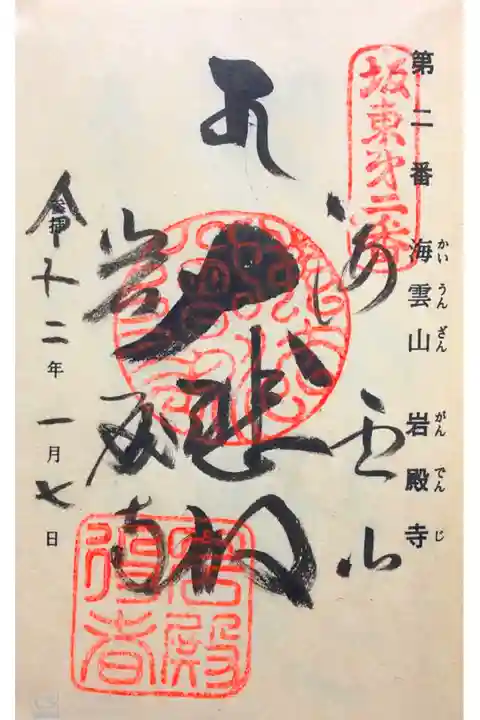 坂東第二番
第二番 海雲山 岩殿寺
かい うん ざん がん でん じ
海雲山
大悲殿
岩殿寺
十二年一月七日